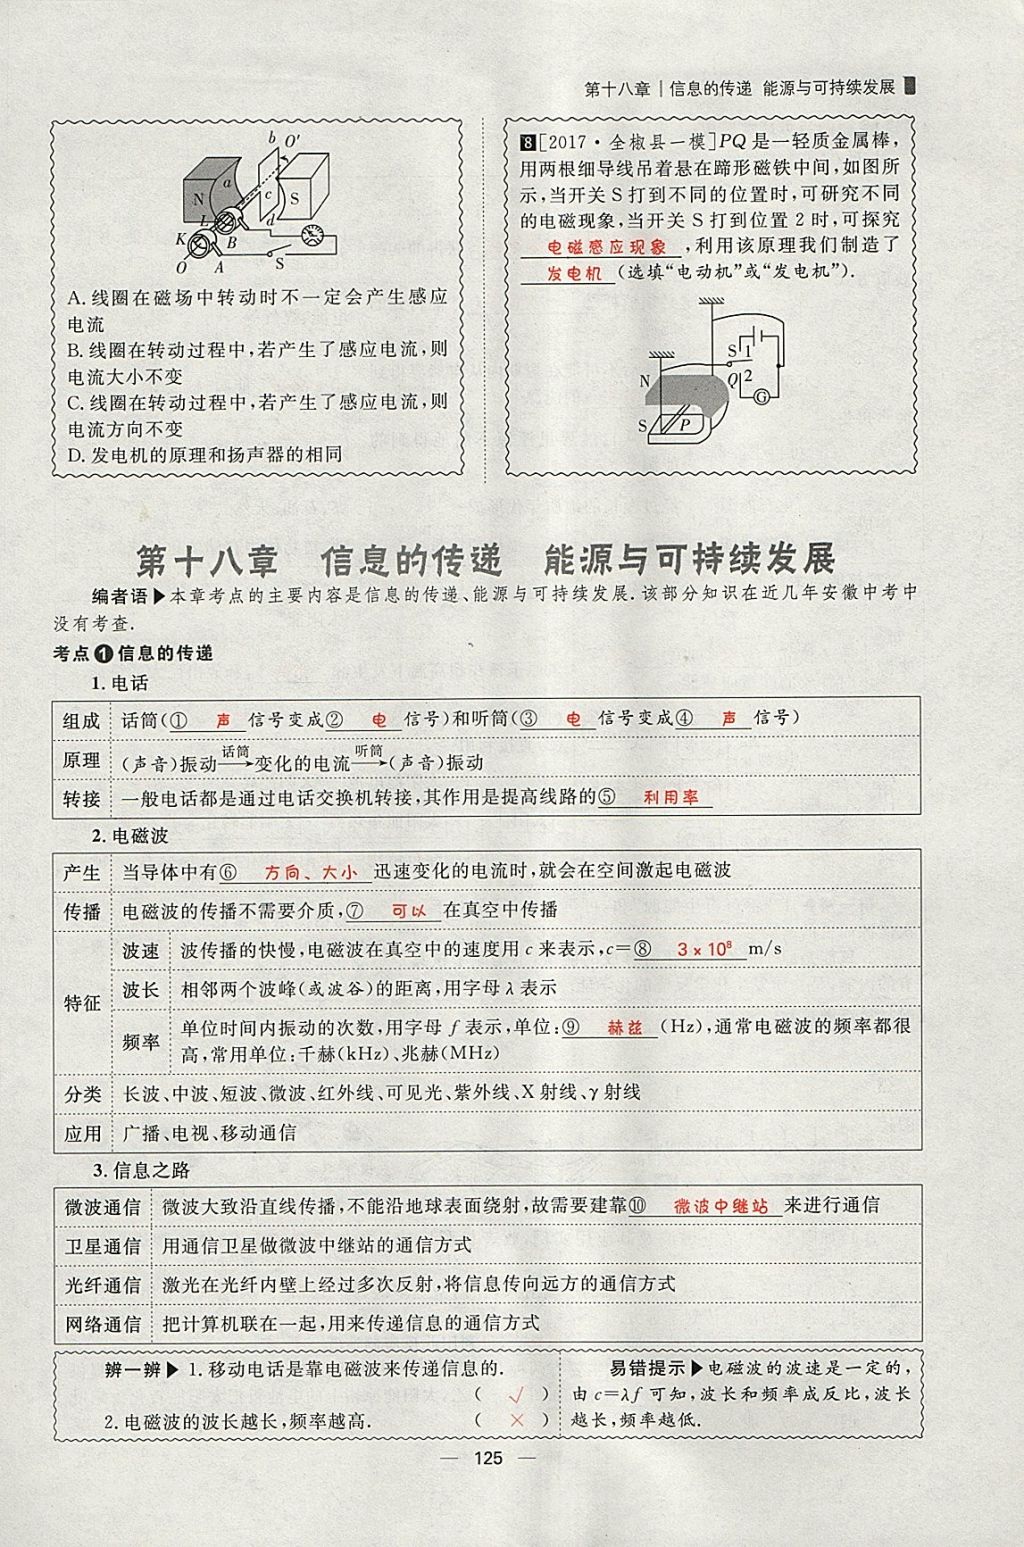 第十八章 | 信息的传递 能源与可持续发展
b O′
a
N c S
L d
K B
O A S
A.线圈在磁场中转动时不一定会产生感应
电流
B.线圈在转动过程中,若产生了感应电流,则
电流大小不变
C.线圈在转动过程中,若产生了感应电流,则
电流方向不变
D.发电机的原理和扬声器的相同
8 [2017·全椒县一模]PQ是一轻质金属棒,
用两根细导线吊着悬在蹄形磁铁中间,如图所
示,当开关S打到不同的位置时,可研究不同
的电磁现象,当开关S打到位置2时,可探究
电磁感应现象,利用该原理我们制造了
发电机(选填“电动机”或“发电机”).
S 1
N Q 2
G
S P
第十八章 信息的传递 能源与可持续发展
编者语▶本章考点的主要内容是信息的传递、能源与可持续发展.该部分知识在近几年安徽中考中
没有考查.
考点❶信息的传递
1.电话
组成 话筒(① 声 信号变成② 电 信号)和听筒(③ 电 信号变成④ 声 信号)
原理 (声音)振动 话筒→ 变化的电流 听筒→ (声音)振动
转接 一般电话都是通过电话交换机转接,其作用是提高线路的⑤ 利用率
2.电磁波
产生 当导体中有⑥ 方向、大小 迅速变化的电流时,就会在空间激起电磁波
传播 电磁波的传播不需要介质,⑦ 可以 在真空中传播
特征 波速 波传播的快慢,电磁波在真空中的速度用c来表示,c=⑧ 3×10⁸ m/s
波长 相邻两个波峰(或波谷)的距离,用字母λ表示
频率 单位时间内振动的次数,用字母f表示,单位:⑨ 赫兹 (Hz),通常电磁波的频率都很
高,常用单位:千赫(kHz)、兆赫(MHz)
分类 长波、中波、短波、微波、红外线、可见光、紫外线、X射线、γ射线
应用 广播、电视、移动通信
3.信息之路
微波通信 微波大致沿直线传播,不能沿地球表面绕射,故需要建靠⑩ 微波中继站 来进行通信
卫星通信 用通信卫星做微波中继站的通信方式
光纤通信 激光在光纤内壁上经过多次反射,将信息传向远方的通信方式
网络通信 把计算机联在一起,用来传递信息的通信方式
辨一辨▶ 1.移动电话是靠电磁波来传递信息的.
( √ )
2.电磁波的波长越长,频率越高. ( × )
易错提示▶电磁波的波速是一定的,
由c=λf可知,波长和频率成反比,波长
越长,频率越低.
— 125 —